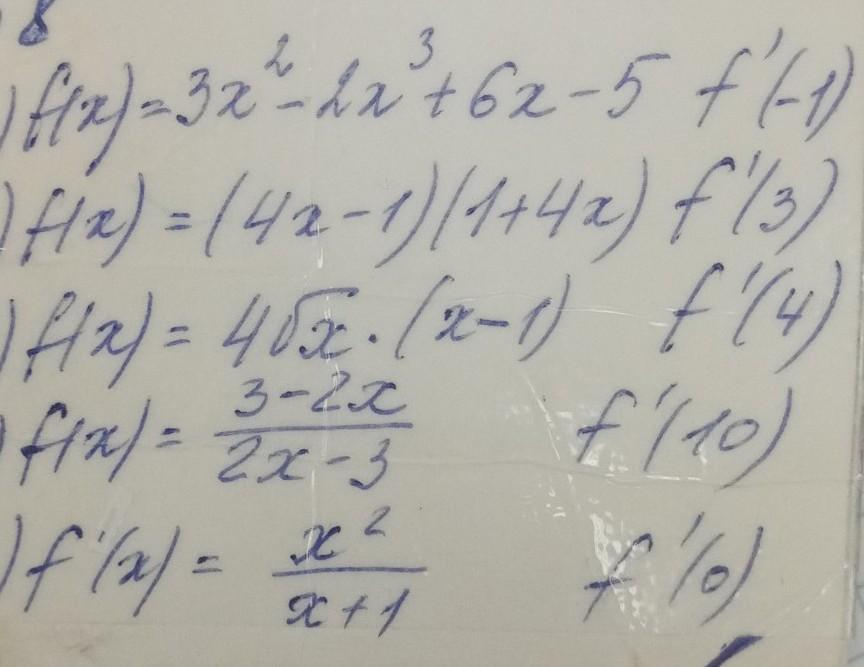 8
) f(x) = 3x² - 2x³ + 6x - 5 f'(-1)
) f(x) = (4x-1)(1+4x) f'(3)
) f(x) = 4√x · (x-1) f'(4)
) f(x) = (3-2x)/(2x-3) f'(10)
) f'(x) = x²/(x+1) f'(0)